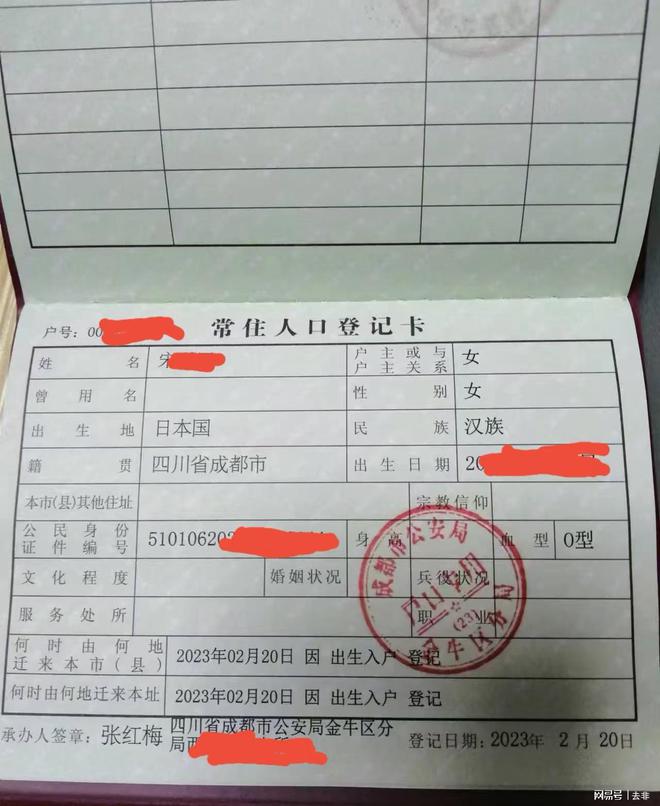 户号: 00
常住人口登记卡
姓名 宋 户主或与户主关系 女
曾用名 性别 女
出生地 日本国 民族 汉族
籍贯 四川省成都市 出生日期 20
本市(县)其他住址 宗教信仰
公民身份证件编号 51010620 身高 血型 O型
文化程度 婚姻状况 兵役状况
服务处所 职业
何时由何地迁来本市(县) 2023年02月20日 因 出生入户 登记
何时由何地迁来本址 2023年02月20日 因 出生入户 登记
成都市公安局
户口专用
(23)
金牛区分局
承办人签章: 张红梅 四川省成都市公安局金牛区分
局西
登记日期: 2023年 2月 20日
网易号 | 去非